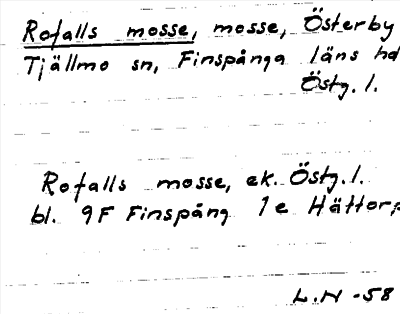 Rofalls mosse, mosse, Österby
Tjällmo sn, Finspånga läns hd
Östg. l.
Rofalls mosse, ek. Östg. l.
bl. 9F Finspång 1e Hättorp
L.N -58